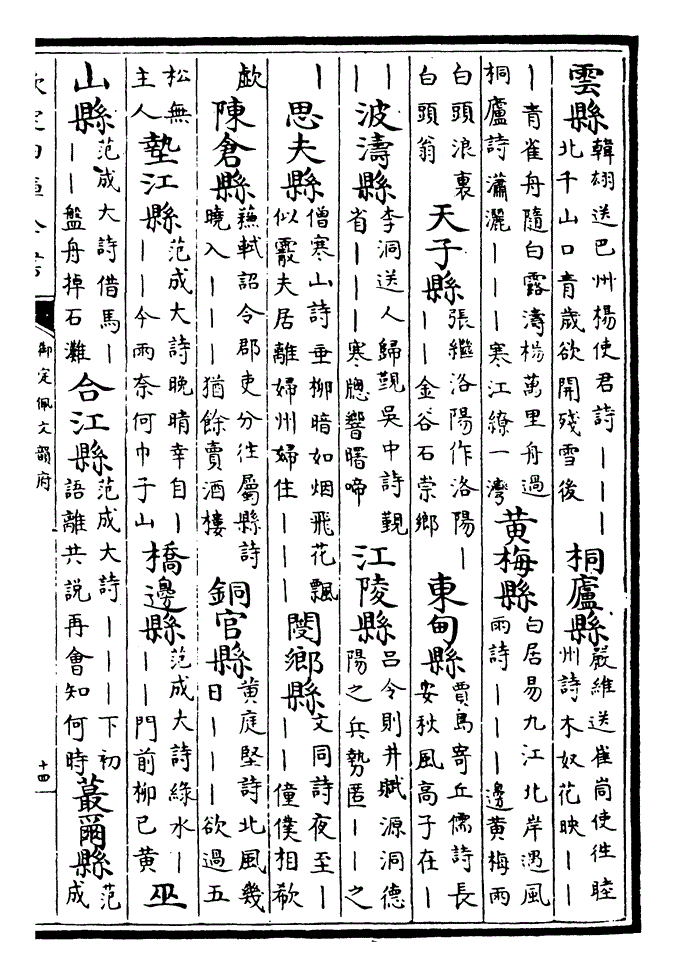 雲縣韓翃送巴州楊使君詩｜｜｜北千山口青歲欲開殘雪後桐廬縣嚴維送崔峒使往睦州詩木奴花映｜｜
｜青雀舟隨白露濤楊萬里舟過桐廬詩瀟灑｜｜｜寒江繚一灣黃梅縣白居易九江北岸遇風雨詩｜｜｜邊黃梅雨
白頭浪裏白頭翁天子縣張繼洛陽作洛陽｜｜｜金谷石崇鄉東甸縣賈島寄丘儒詩長安秋風高子在｜
｜｜波濤縣李洞送人歸覲吳中詩覲省｜｜｜寒牕響曙啼江陵縣呂令則井賦源洞德陽之兵勢匿｜｜之
｜思夫縣僧寒山詩垂柳暗如烟飛花飄似霰夫居離婦州婦住｜｜｜閿鄉縣文同詩夜至｜｜｜僮僕相欷
歔陳倉縣蘇軾詔令郡吏分往屬縣詩曉入｜｜｜猶餘賣酒樓銅官縣黃庭堅詩北風幾日｜｜｜欲過五
松無主人墊江縣范成大詩晚晴幸自｜｜｜今雨奈何巾子山橋邊縣范成大詩綠水｜｜｜門前柳已黃巫
山縣范成大詩借馬｜｜｜盤舟掉石灘合江縣范成大詩｜｜｜下初語離共說再會知何時蕞爾縣范成
欽定四庫全書
御定佩文韻府
十四